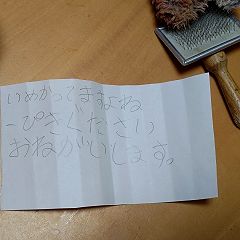 いぬかってますよね
一ぴきください
おねがいします。